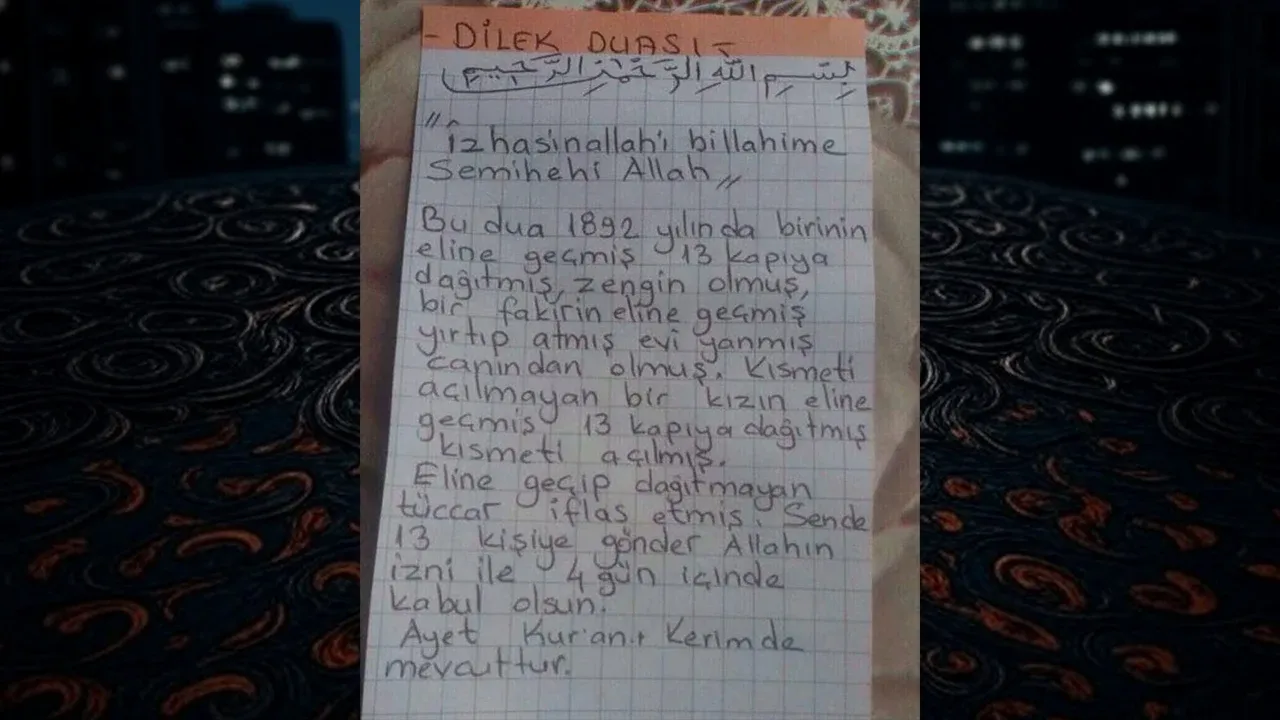 - DİLEK DUASI -
بِسْمِ اللّٰهِ الرَّحْمٰنِ الرَّحِيمِ
" İzhasinallah'ı billahime
Semihehi Allah "
Bu dua 1892 yılında birinin
eline geçmiş 13 kapıya
dağıtmış, zengin olmuş,
bir fakirin eline geçmiş
yırtıp atmış evi yanmış
canından olmuş. Kısmeti
açılmayan bir kızın eline
geçmiş 13 kapıya dağıtmış
kısmeti açılmış.
Eline geçip dağıtmayan
tüccar iflas etmiş. Sende
13 kişiye gönder Allahın
izni ile 4 gün içinde
kabul olsun.
Ayet Kur'an-ı Kerimde
mevcuttur.